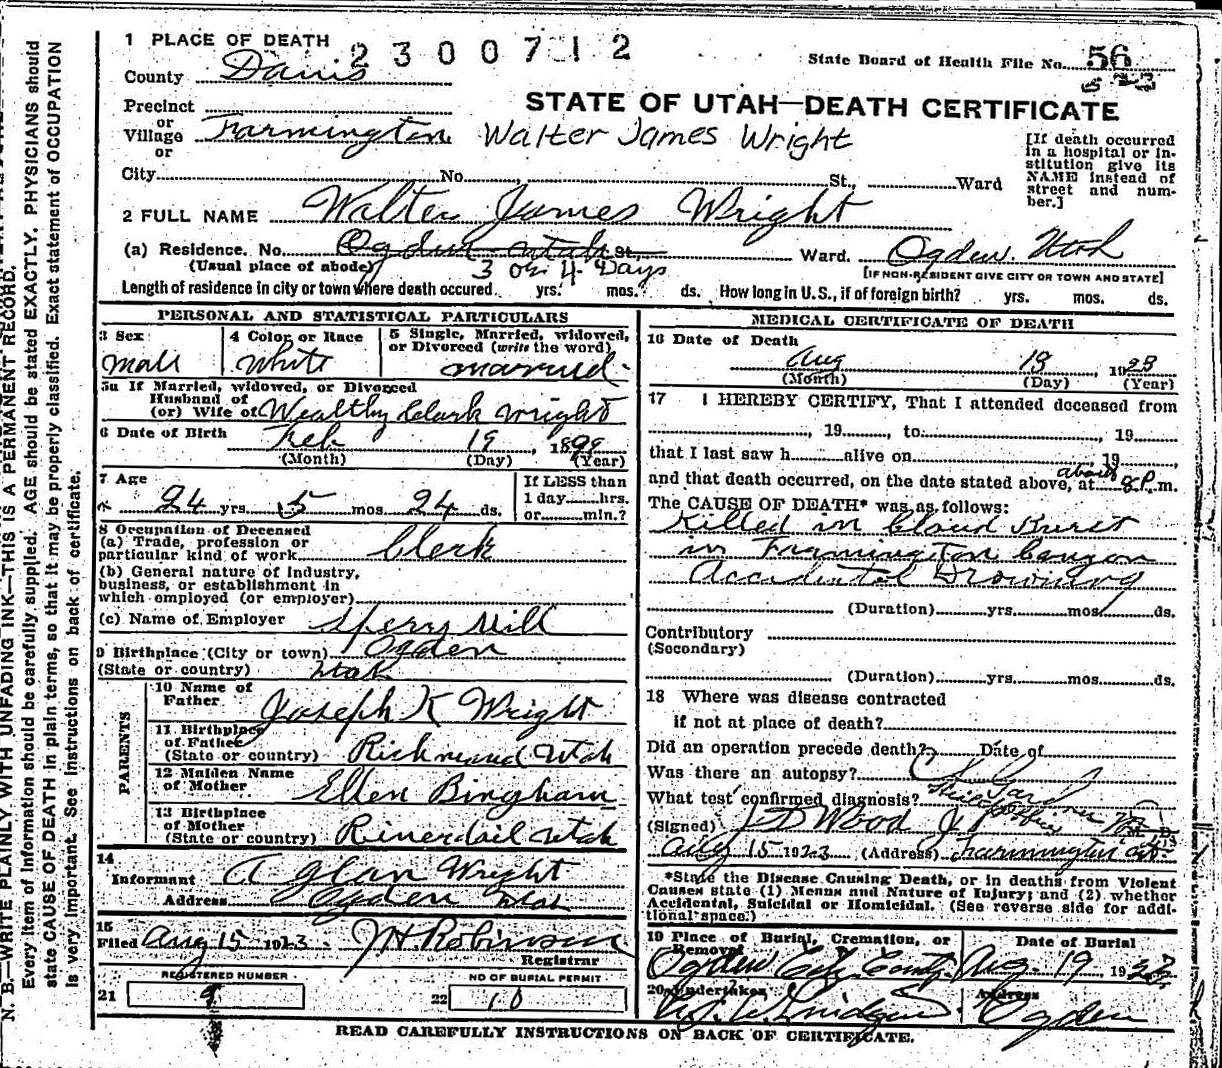 1 PLACE OF DEATH
2300712
State Board of Health File No. 56
County Davis
STATE OF UTAH—DEATH CERTIFICATE
Precinct
or
Village Farmington Walter James Wright
or
[If death occurred in a hospital or institution give its NAME instead of street and number.]
City No. St., Ward
2 FULL NAME Walter James Wright
(a) Residence. No. Ogden Utah St. Ward. Ogden. Utah
(Usual place of abode) 3 or 4 Days [IF NON-RESIDENT GIVE CITY OR TOWN AND STATE]
Length of residence in city or town where death occured. yrs. mos. ds. How long in U.S., if of foreign birth? yrs. mos. ds.
PERSONAL AND STATISTICAL PARTICULARS
3 Sex Male
4 Color or Race White
5 Single, Married, widowed, or Divorced (write the word) married
5a If Married, widowed, or Divorced
Husband of
(or) Wife of Wealthy Clark Wright
6 Date of Birth Feb 19, 1899
(Month) (Day) (Year)
7 Age
24 yrs 5 mos 24 ds.
If LESS than
1 day hrs.
or min.?
8 Occupation of Deceased
(a) Trade, profession or
particular kind of work Clerk
(b) General nature of industry,
business, or establishment in
which employed (or employer)
(c) Name of Employer Sperry Mill
9 Birthplace (City or town) Ogden
(State or country) Utah
PARENTS
10 Name of
Father Joseph K Wright
11 Birthplace
of Father
(State or country) Richmond Utah
12 Maiden Name
of Mother Ellen Bingham
13 Birthplace
of Mother
(State or country) Riverdail Utah
14
Informant A Glan Wright
Address Ogden Utah
15
Filed Aug 15 1923. J H Robinson
Registrar
REGISTERED NUMBER
21 9
NO OF BURIAL PERMIT
22 10
MEDICAL CERTIFICATE OF DEATH
16 Date of Death
Aug 13, 1923
(Month) (Day) (Year)
17 I HEREBY CERTIFY, That I attended deceased from
, 19 , to , 19
that I last saw h alive on 19 ,
and that death occurred, on the date stated above, at about 8 P. m.
The CAUSE OF DEATH* was as follows:
Killed in Cloud Burst
in Farmington Canyon
Accidental Drowning
(Duration) yrs. mos. ds.
Contributory
(Secondary)
(Duration) yrs. mos. ds.
18 Where was disease contracted
if not at place of death?
Did an operation precede death? Date of
Was there an autopsy?
What test confirmed diagnosis?
(Signed) J D Wood
Aug 15 1923 (Address) Farmington
*State the Disease Causing Death, or in deaths from Violent
Causes state (1) Menus and Nature of Injury; and (2) whether
Accidental, Suicidal or Homicidal. (See reverse side for addi-
tional space.)
19 Place of Burial, Cremation, or Removal
Ogden City Cemty.
Date of Burial
Aug. 19 1923
20 Undertaker
Address
Ogden
READ CAREFULLY INSTRUCTIONS ON BACK OF CERTIFICATE.
N. B.—WRITE PLAINLY WITH UNFADING INK—THIS IS A PERMANENT RECORD.
Every item of information should be carefully supplied. AGE should be stated EXACTLY. PHYSICIANS should
state CAUSE OF DEATH in plain terms, so that it may be properly classified. Exact statement of OCCUPATION
is very important. See instructions on back of certificate.